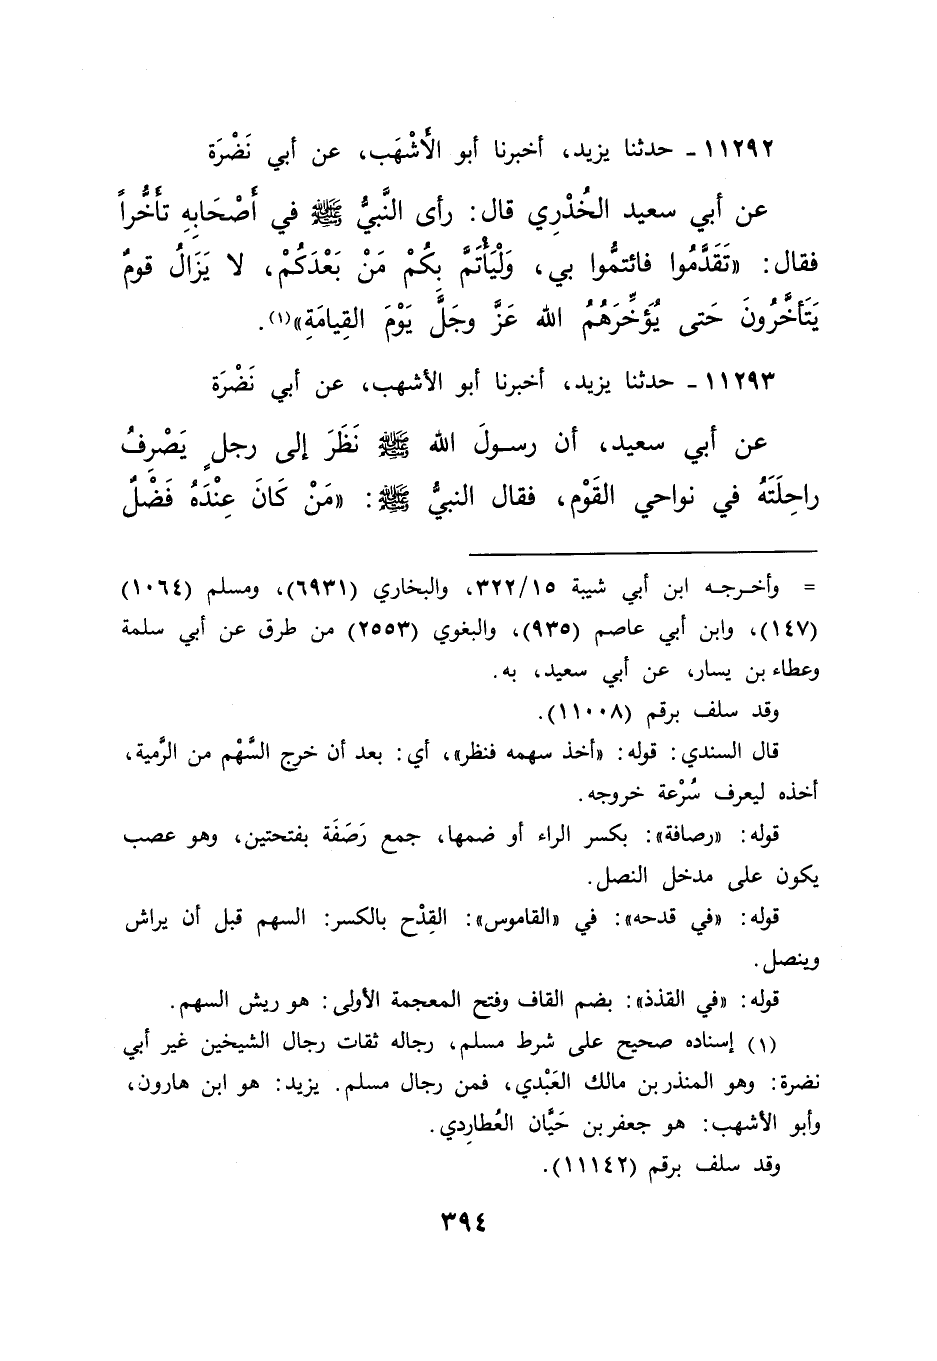 ١١٢٩٢ - حدثنا يزيد، أخبرنا أبو الأَشْهَب، عن أبي نَضْرَة
عن أبي سعيد الخُدْرِي قال: رأى النَّبيُّ ﷺ في أَصْحَابِهِ تأَخُّراً
فقال: «تَقَدَّمُوا فائتمُّوا بي، وَلْيَأْتَمَّ بِكُمْ مَنْ بَعْدَكُمْ، لا يَزَالُ قومٌ
يَتَأخَّرُونَ حَتى يُؤخِّرَهُمُ الله عَزَّ وجَلَّ يَوْمَ القِيامَةِ»(١).
١١٢٩٣ - حدثنا يزيد، أخبرنا أبو الأشهب، عن أبي نَضْرَة
عن أبي سعيد، أن رسولَ الله ﷺ نَظَرَ إلى رجلٍ يَصْرِفُ
راحِلَتَهُ في نواحي القَوْم، فقال النبيُّ ﷺ: «مَنْ كَانَ عِنْدَهُ فَضْلٌ
= وأخرجه ابن أبي شيبة ٣٢٢/١٥، والبخاري (٦٩٣١)، ومسلم (١٠٦٤)
(١٤٧)، وابن أبي عاصم (٩٣٥)، والبغوي (٢٥٥٣) من طرق عن أبي سلمة
وعطاء بن يسار، عن أبي سعيد، به.
وقد سلف برقم (١١٠٠٨).
قال السندي: قوله: «أخذ سهمه فنظر»، أي: بعد أن خرج السَّهْم من الرَّمية،
أخذه ليعرف سُرْعة خروجه.
قوله: «رصافة»: بكسر الراء أو ضمها، جمع رَصَفَة بفتحتين، وهو عصب
يكون على مدخل النصل.
قوله: «في قدحه»: في «القاموس»: القِدْح بالكسر: السهم قبل أن يراش
وينصل.
قوله: «في القذذ»: بضم القاف وفتح المعجمة الأولى: هو ريش السهم.
(١) إسناده صحيح على شرط مسلم، رجاله ثقات رجال الشيخين غير أبي
نضرة: وهو المنذر بن مالك العَبْدي، فمن رجال مسلم. يزيد: هو ابن هارون،
وأبو الأشهب: هو جعفر بن حَيَّان العُطارِدي.
وقد سلف برقم (١١١٤٢).
٣٩٤